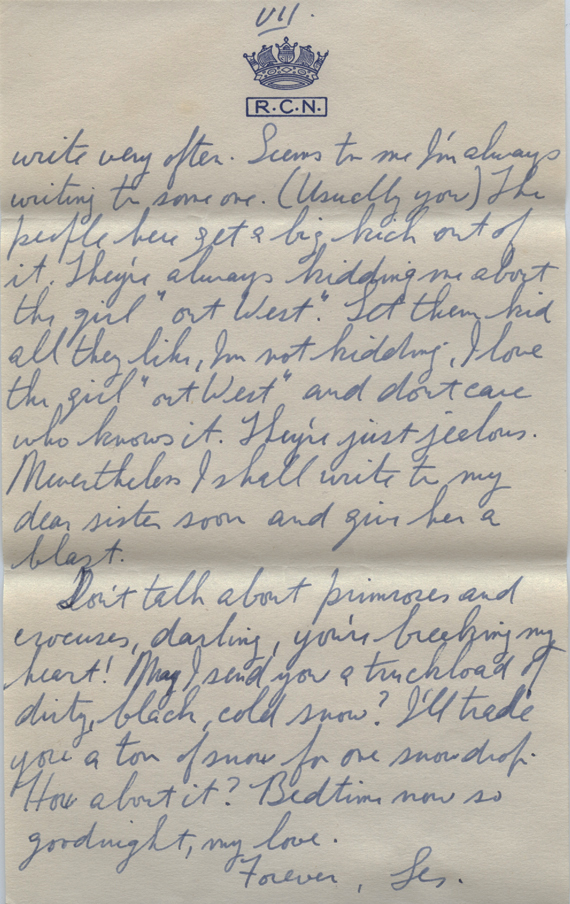 VII.
R.C.N.
write very often. Seems to me I'm always
writing to some one. (Usually you) The
people here get a big kick out of
it. They're always kidding me about
the girl "out West". Let them kid
all they like, I'm not kidding, I love
the girl "out West" and don't care
who knows it. They're just jealous.
Nevertheless I shall write to my
dear sister soon and give her a
blast.
Don't talk about primroses and
crocuses, darling, you're breaking my
heart! May I send you a truckload of
dirty, black, cold snow? I'll trade
you a ton of snow for one snowdrop.
How about it? Bedtime now so
goodnight, my love.
Forever, Les.